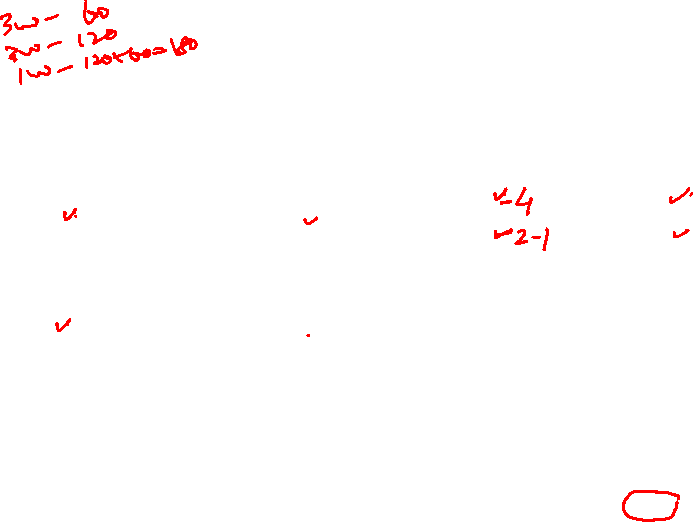 3w - 60
2w - 120
1w - 120+60=180
✓-4 ✓
✓ ✓
✓2-1 ✓
✓